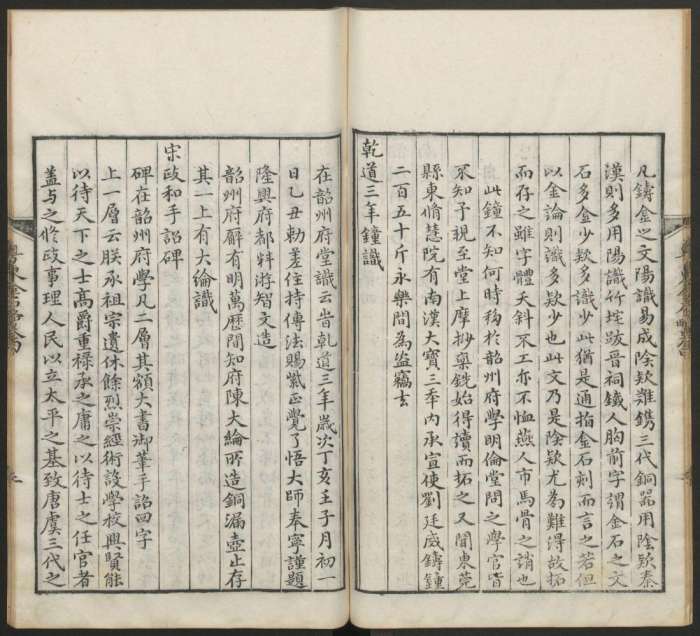 凡鑄金之文陽識易成陰欵難鐫三代銅器用陰欵秦
漢則多用陽識竹垞跋晉祠鐵人胸前字謂金石之文
石多金少欵多識少此猶是通指金石刻而言之若但
以金論則識多欵少也此文乃是陰欵尤為難得故拓
而存之雖字體天斜不工亦不恤燕人市馬骨之誚也
此鐘不知何時移於韶州府學明倫堂問之學官皆
不知予親至堂上摩抄藥銑始得讀而拓之又聞東莞
縣東脩慧院有南漢大寶三年內承宣使劉廷威鑄鐘
二百五十斤永樂間為盜竊去
乾道三年鐘識
在韶州府堂識云旹乾道三年歲次丁亥壬子月初一
日乙丑勅差住持傳法賜紫正覺了悟大師奉寧謹題
隆興府都料游智文造
韶州府廨有明萬歷間知府陳大綸所造銅漏壺止存
其一上有大綸識
宋政和手詔碑
碑在韶州府學凡二層其額大書御筆手詔四字
上一層云朕承祖宗遺休餘烈崇經術設學校興賢能
以待天下之士高爵重祿承之庸之以待士之任官者
盖与之修政事理人民以立太平之基致唐虞三代之